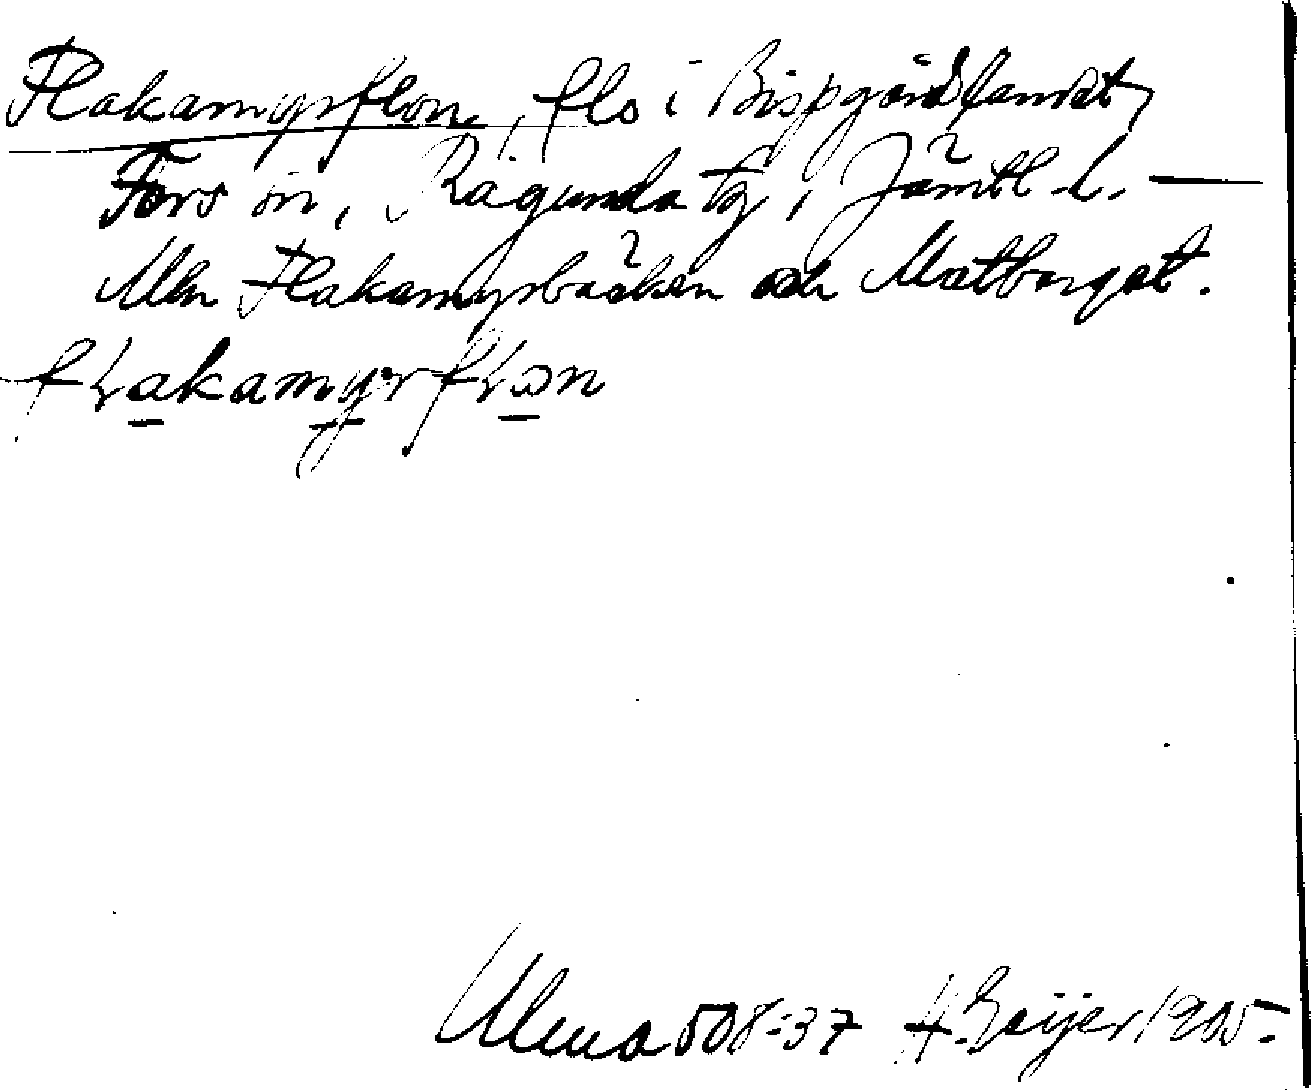 Flakamyrflon, flo i Bispgårdslandet,
Fors sn, Ragunda tg, Jämtl. l. —
Mln Flakamyrbäcken och Matberget.
fḷakamyrfḷɔn
Ulma 508:37 H. Geijer 1905.